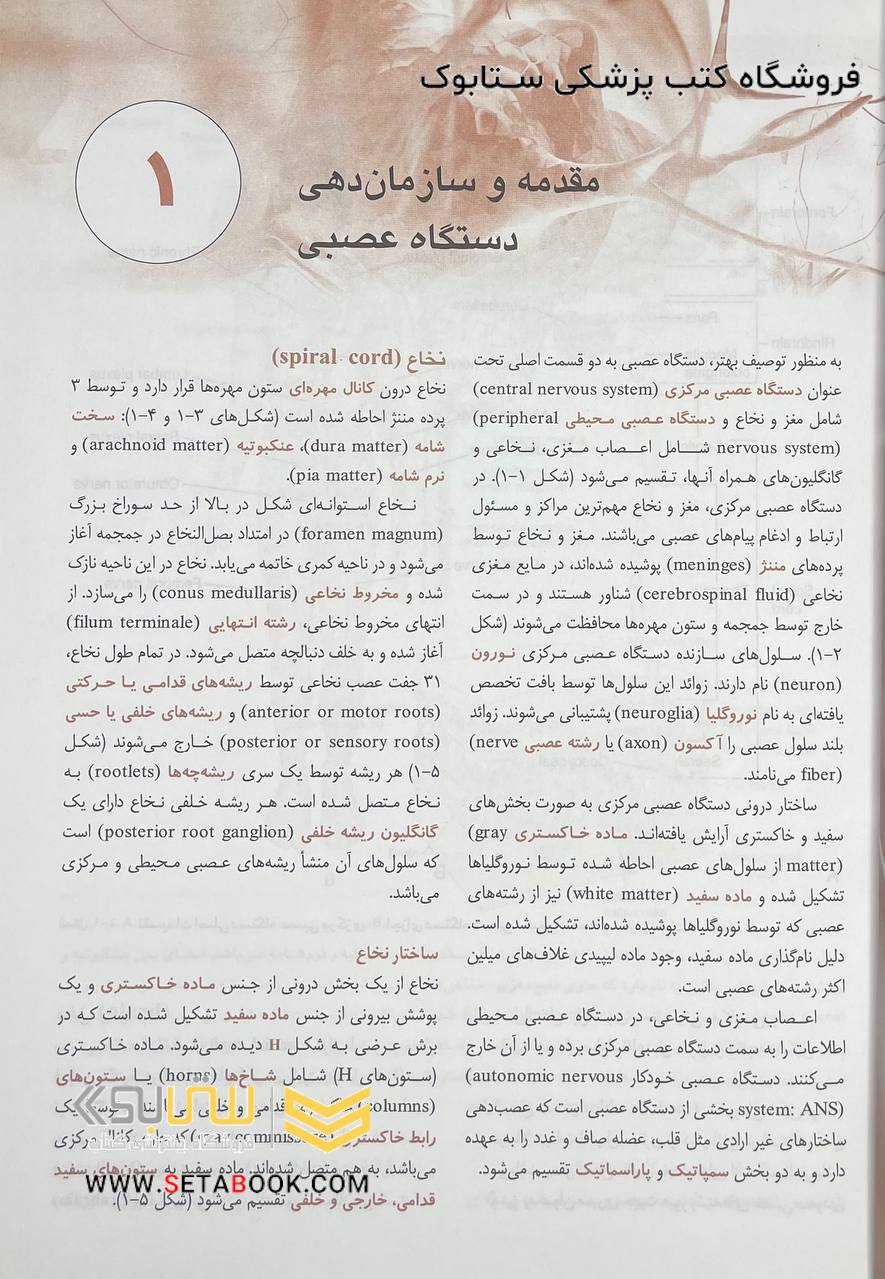 فروشگاه کتب پزشکی ستابوک
۱
مقدمه و سازمان‌دهی
دستگاه عصبی
به منظور توصیف بهتر، دستگاه عصبی به دو قسمت اصلی تحت
عنوان دستگاه عصبی مرکزی (central nervous system)
شامل مغز و نخاع و دستگاه عصبی محیطی (peripheral
nervous system) شامل اعصاب مغزی، نخاعی و
گانگلیون‌های همراه آنها، تقسیم می‌شود (شکل ۱-۱). در
دستگاه عصبی مرکزی، مغز و نخاع مهم‌ترین مراکز و مسئول
ارتباط و ادغام پیام‌های عصبی می‌باشند. مغز و نخاع توسط
پرده‌های مننژ (meninges) پوشیده شده‌اند، در مایع مغزی
نخاعی (cerebrospinal fluid) شناور هستند و در سمت
خارج توسط جمجمه و ستون مهره‌ها محافظت می‌شوند (شکل
۱-۲). سلول‌های سازنده دستگاه عصبی مرکزی نورون
(neuron) نام دارند. زوائد این سلول‌ها توسط بافت تخصص
یافته‌ای به نام نوروگلیا (neuroglia) پشتیبانی می‌شوند. زوائد
بلند سلول عصبی را آکسون (axon) یا رشته عصبی (nerve
fiber) می‌نامند.
ساختار درونی دستگاه عصبی مرکزی به صورت بخش‌های
سفید و خاکستری آرایش یافته‌اند. ماده خاکستری (gray
matter) از سلول‌های عصبی احاطه شده توسط نوروگلیاها
تشکیل شده و ماده سفید (white matter) نیز از رشته‌های
عصبی که توسط نوروگلیاها پوشیده شده‌اند، تشکیل شده است.
دلیل نام‌گذاری ماده سفید، وجود ماده لیپیدی غلاف‌های میلین
اکثر رشته‌های عصبی است.
اعصاب مغزی و نخاعی، در دستگاه عصبی محیطی
اطلاعات را به سمت دستگاه عصبی مرکزی برده و یا از آن خارج
می‌کنند. دستگاه عصبی خودکار (autonomic nervous
system: ANS) بخشی از دستگاه عصبی است که عصب‌دهی
ساختارهای غیر ارادی مثل قلب، عضله صاف و غدد را به عهده
دارد و به دو بخش سمپاتیک و پاراسماتیک تقسیم می‌شود.
نخاع (spiral cord)
نخاع درون کانال مهره‌ای ستون مهره‌ها قرار دارد و توسط ۳
پرده مننژ احاطه شده است (شکل‌های ۳-۱ و ۴-۱): سخت
شامه (dura matter)، عنکبوتیه (arachnoid matter) و
نرم شامه (pia matter).
نخاع استوانه‌ای شکل در بالا از حد سوراخ بزرگ
(foramen magnum) در امتداد بصل‌النخاع در جمجمه آغاز
می‌شود و در ناحیه کمری خاتمه می‌یابد. نخاع در این ناحیه نازک
شده و مخروط نخاعی (conus medullaris) را می‌سازد. از
انتهای مخروط نخاعی، رشته انتهایی (filum terminale)
آغاز شده و به خلف دنبالچه متصل می‌شود. در تمام طول نخاع،
۳۱ جفت عصب نخاعی توسط ریشه‌های قدامی یا حرکتی
(anterior or motor roots) و ریشه‌های خلفی یا حسی
(posterior or sensory roots) خارج می‌شوند (شکل
۱-۵) هر ریشه توسط یک سری ریشه‌چه‌ها (rootlets) به
نخاع متصل شده است. هر ریشه خلفی نخاع دارای یک
گانگلیون ریشه خلفی (posterior root ganglion) است
که سلول‌های آن منشأ ریشه‌های عصبی محیطی و مرکزی
می‌باشد.
ساختار نخاع
نخاع از یک بخش درونی از جنس ماده خاکستری و یک
پوشش بیرونی از جنس ماده سفید تشکیل شده است که در
برش عرضی به شکل H دیده می‌شود. ماده خاکستری
(ستون‌های H) شامل شاخ‌ها (horns) یا ستون‌های
(columns) قدامی و خلفی یک
رابط خاکستری مرکزی
می‌باشد، به هم متصل شده‌اند. ماده سفید به ستون‌های سفید
قدامی، خارجی و خلفی تقسیم می‌شود (شکل ۵-۱).
ستابوک
فروشگاه اینترنتی کتاب
WWW.SETABOOK.COM